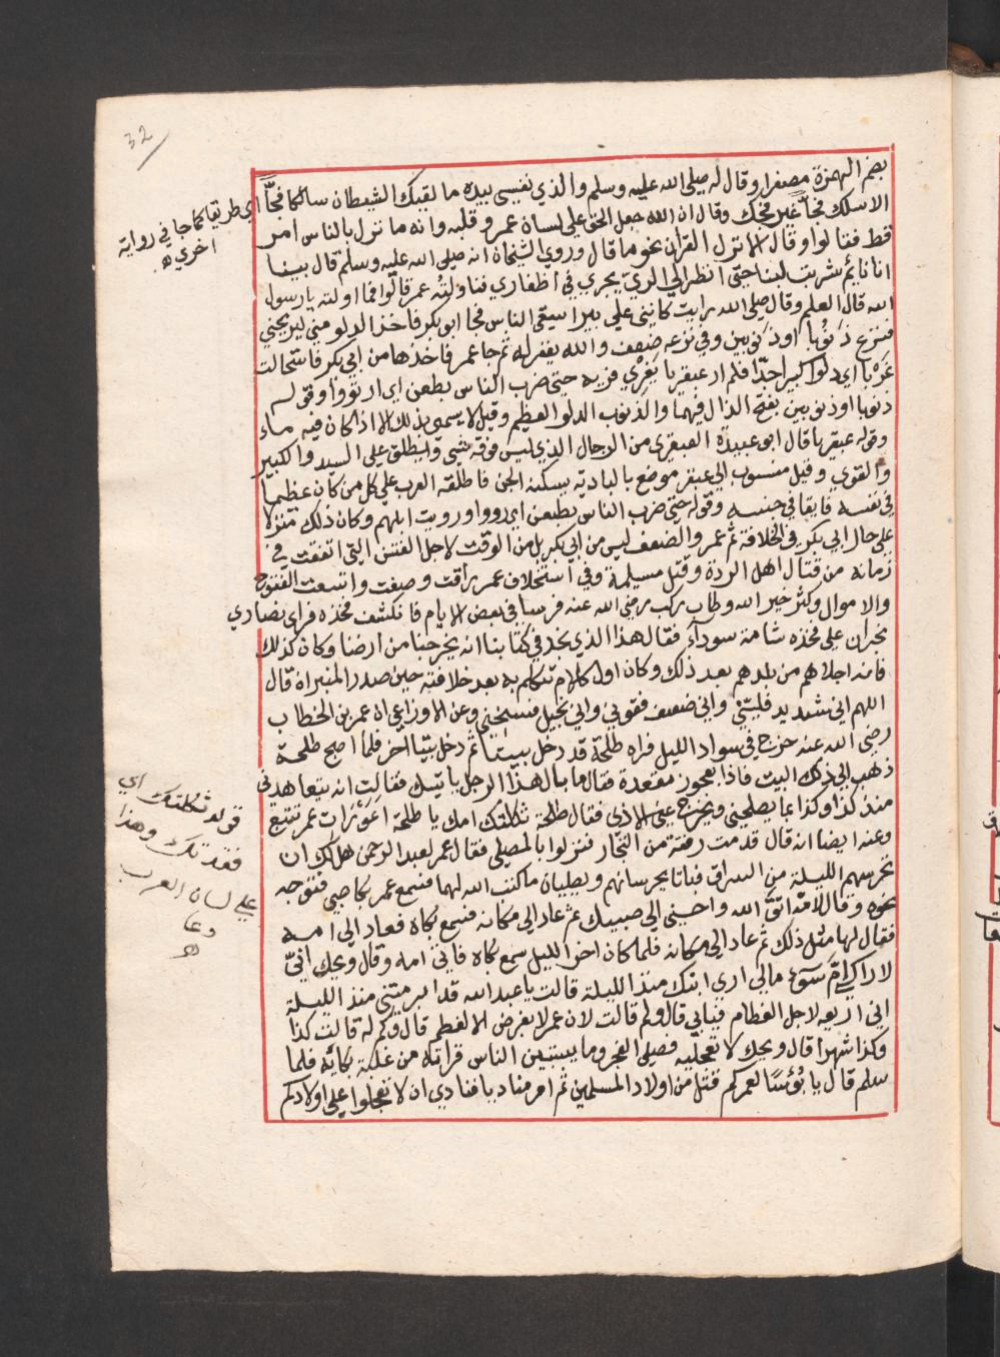 32
بضم الهمزة مصغرا وقال له صلى الله عليه وسلم والذي نفسي بيده ما لقيك الشيطان سالكا فجّاً
اي طريقا كما جا في رواية
اخري ه
الا سلك فجاً غير فجك وقال ان الله جعل الحق علي لسان عمر وقلبه وانه ما نزل بالناس امر
قط فقالوا وقال الا نزل القران نحو ما قال وروي الشيخان انه صلى الله عليه وسلم قال بينا
انا نايم شربت لبنا حتى انظر الي الريّ يجري في اظفاري فناولته عمر قالوا فما اولته يا رسول
الله قال العلم وقال صلى الله رايت كانني علي بير اسقي الناس فجا ابو بكر فاخذ الدلو مني ليريحني
فنزع ذنوبا او ذنوبين وفي نزعه ضعف والله يغفر له ثم جا عمر فاخذها من ابي بكر فاستحالت
غربا اي دلوا كبيرا جدا فلم ار عبقريا يفري فريه حتى ضرب الناس بطعن اي ارتووا وقوله
ذنوبا او ذنوبين بفتح الذال فيهما والذنوب الدلو العظيم وقيل لا يسمى بذلك الا اذا كان فيه ماء
وقوله عبقريا قال ابو عبيدة العبقري من الرجال الذي ليس فوقه شي ويطلق علي السيد والكبير
والقوي وقيل منسوب الي عبقر موضع بالبادية يسكنه الجن فاطلقه العرب علي كل من كان عظيما
في نفسه فايقا في جنسه وقوله حتى ضرب الناس بطعن اي رووا ورويت ابلهم وكان ذلك منزلا
علي حال ابي بكر في الخلافة ثم عمر والضعف ليس من ابي بكر بل من الوقت لاجل الفتن التي اتفقت في
زمانه من قتال اهل الردة وقتل مسيلمة وفي استخلاف عمر راقت وصفت واتسعت الفتوح
والاموال وكثر خير الله وطاب ركب رضي الله عنه فرسا في بعض الايام فانكشف فخذه فراي نصاري
نجران علي فخذه شامة سوداء فقال هذا الذي نجد في كتابنا انه يخرجنا من ارضنا وكان كذلك
فانه اجلاهم من بلدهم بعد ذلك وكان اول كلام تكلم به بعد خلافته حين صعد المنبر انه قال
اللهم اني شديد فليّنّي واني ضعيف فقوني واني بخيل فسخني وعن الاوزاعي ان عمر بن الخطاب
رضي الله عنه خرج في سواد الليل فراه طلحة قد دخل بيتا ثم دخل بيتا اخر فلما اصبح طلحة
ذهب الي ذلك البيت فاذا بعجوز مقعدة فقال ما بال هذا الرجل ياتيك فقالت انه يتعاهدني
منذ كذا وكذا بما يصلحني ويخرج عني الاذي فقال طلحة ثكلتك امك يا طلحة اعثرات عمر تتبع
قوله ثكلتك اي
فقدتك وهذا
علي لسان العرب
دعا
ه
وعنه ايضا انه قال قدمت رفقة من التجار فنزلوا بالمصلي فقال عمر لعبد الرحمن هل لك ان
نحرسهم الليلة من السراق فباتا يحرسانهم ويصليان ما كتب الله لهما فسمع عمر بكا صبي فتوجه
نحوه وقال لامه اتق الله واحسني الي صبيك ثم عاد الي مكانه فسمع بكاه فعاد الي امه
فقال لها مثل ذلك ثم عاد الي مكانه فلما كان اخر الليل سمع بكاه فاتي امه وقال ويحك اني
لاراك امّ سوء ما لي اري ابنك منذ الليلة قالت يا عبد الله قد ابرمتني منذ الليلة
اني اريعه لاجل الفطام فيابي قال ولم قالت لان عمر لا يفرض الا لفطيم قال وكم له قالت كذا
وكذا شهرا قال ويحك لا تعجليه فصلي الفجر وما يستبين الناس قراته من غلبة بكايه فلما
سلم قال يا بؤسا لعمر كم قتل من اولاد المسلمين ثم امر مناديا فنادي ان لا تعجلوا علي اولادكم